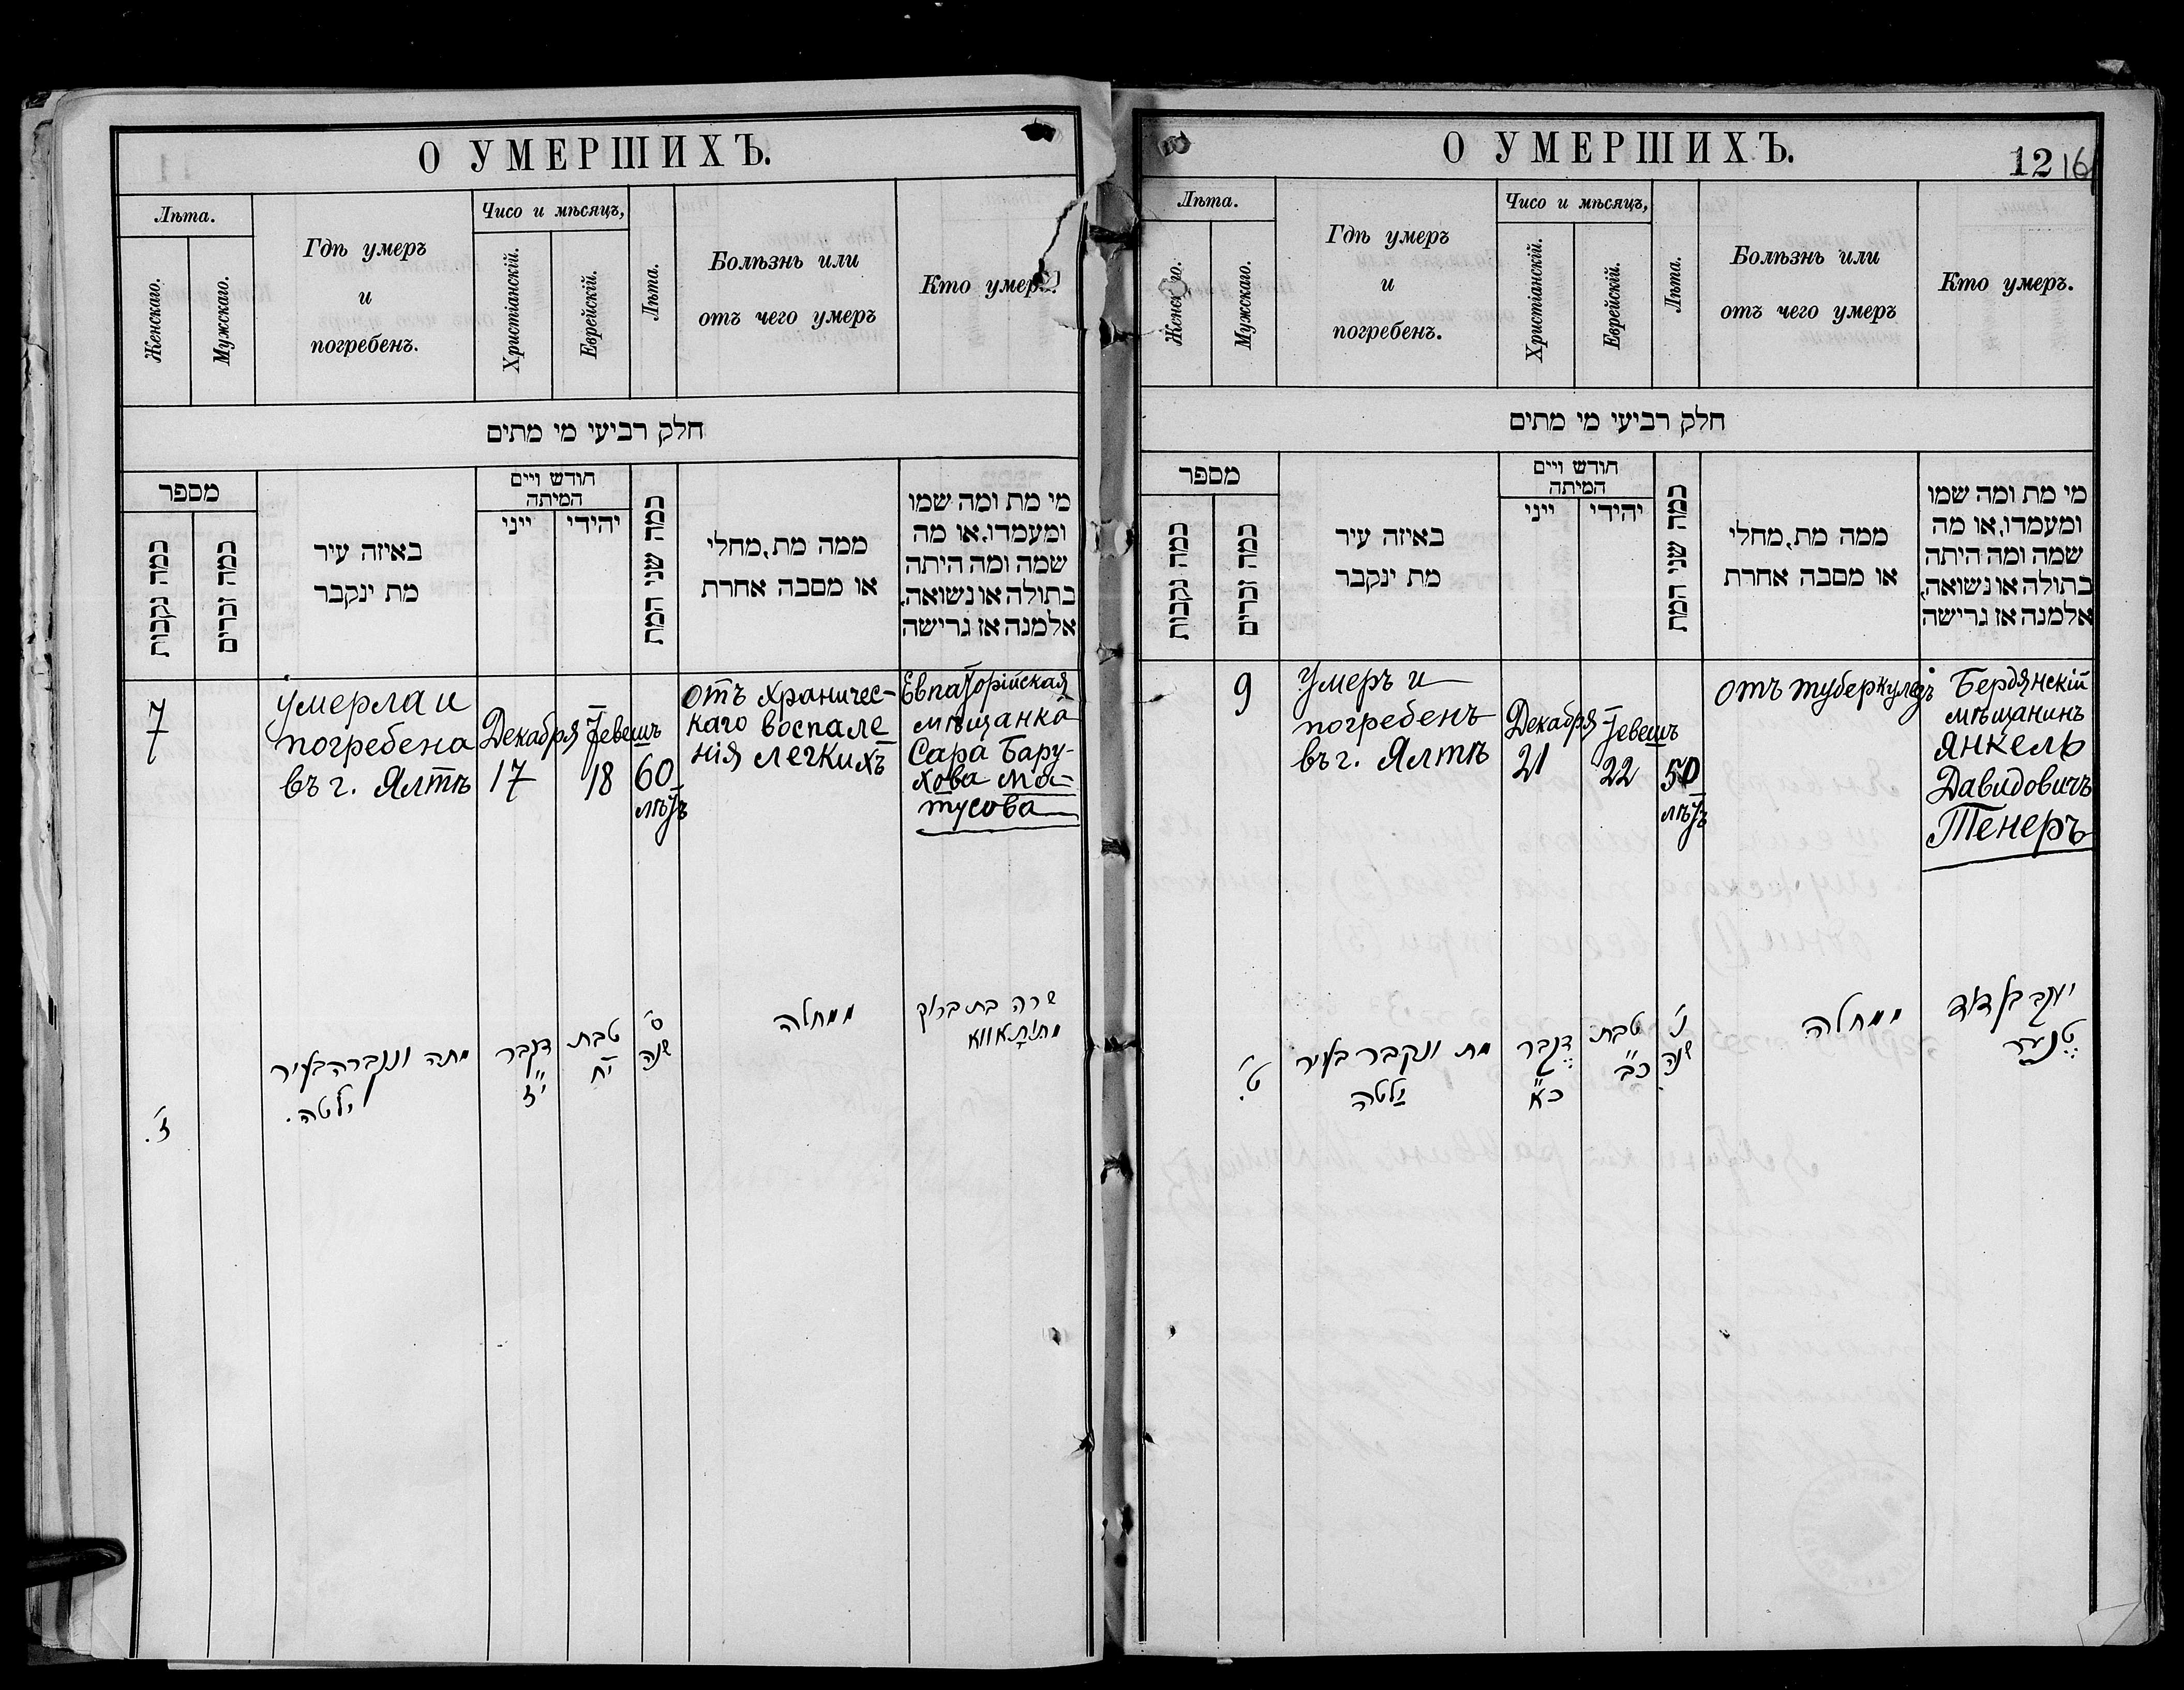 О УМЕРШИХЪ.
Лѣта.
Женскаго.
Мужскаго.
Гдѣ умеръ
и
погребенъ.
Чисо и мѣсяцъ,
Христіанскій.
Еврейскій.
Лѣта.
Болѣзнь или
отъ чего умеръ
Кто умеръ.
חלק רביעי מי מתים
מספר
כמה נקבות
כמה זכרים
באיזה עיר
מת ינקבר
חודש ויים
המיתה
ייני
יהידי
כמה שני המת
ממה מת, מחלי
או מסבה אחרת
מי מת ומה שמו
ומעמדו, או מה
שמה ומה היתה
בתולה או נשואה,
אלמנה אז גרישה
7
умерла и
погребена
въ г. Ялтѣ
Декабря
17
Тевешъ
18
60
лѣтъ
отъ храничес-
каго воспале
нія легкихъ
Евпаторійская
мѣщанка
Сара Бару-
хова Ма-
тусова
ז'.
מתה ונקברה בעיר
ילטה.
דעקבר
י"ז
טבת
י"ח
ס'
שנה
ממחלה
שרה בת ברוך
О УМЕРШИХЪ.
12 16
Лѣта.
Женскаго.
Мужскаго.
Гдѣ умеръ
и
погребенъ.
Чисо и мѣсяцъ,
Христіанскій.
Еврейскій.
Лѣта.
Болѣзнь или
отъ чего умеръ
Кто умеръ.
חלק רביעי מי מתים
מספר
כמה נקבות
כמה זכרים
באיזה עיר
מת ינקבר
חודש ויים
המיתה
ייני
יהידי
כמה שני המת
ממה מת, מחלי
או מסבה אחרת
מי מת ומה שמו
ומעמדו, או מה
שמה ומה היתה
בתולה או נשואה,
אלמנה אז גרישה
9
Умеръ и
погребенъ
въ г. Ялтѣ
Декабря
21
Тевешъ
22
50
лѣтъ
отъ туберкулезъ
Бердянскій
мѣщанинъ
Янкель
Давидовичъ
Тенеръ
ט'.
מת ונקבר בעיר
ילטה
כ"א
טבת
כ"ב
נ'
שנה
ממחלה
יעקב בן דוד
טנער